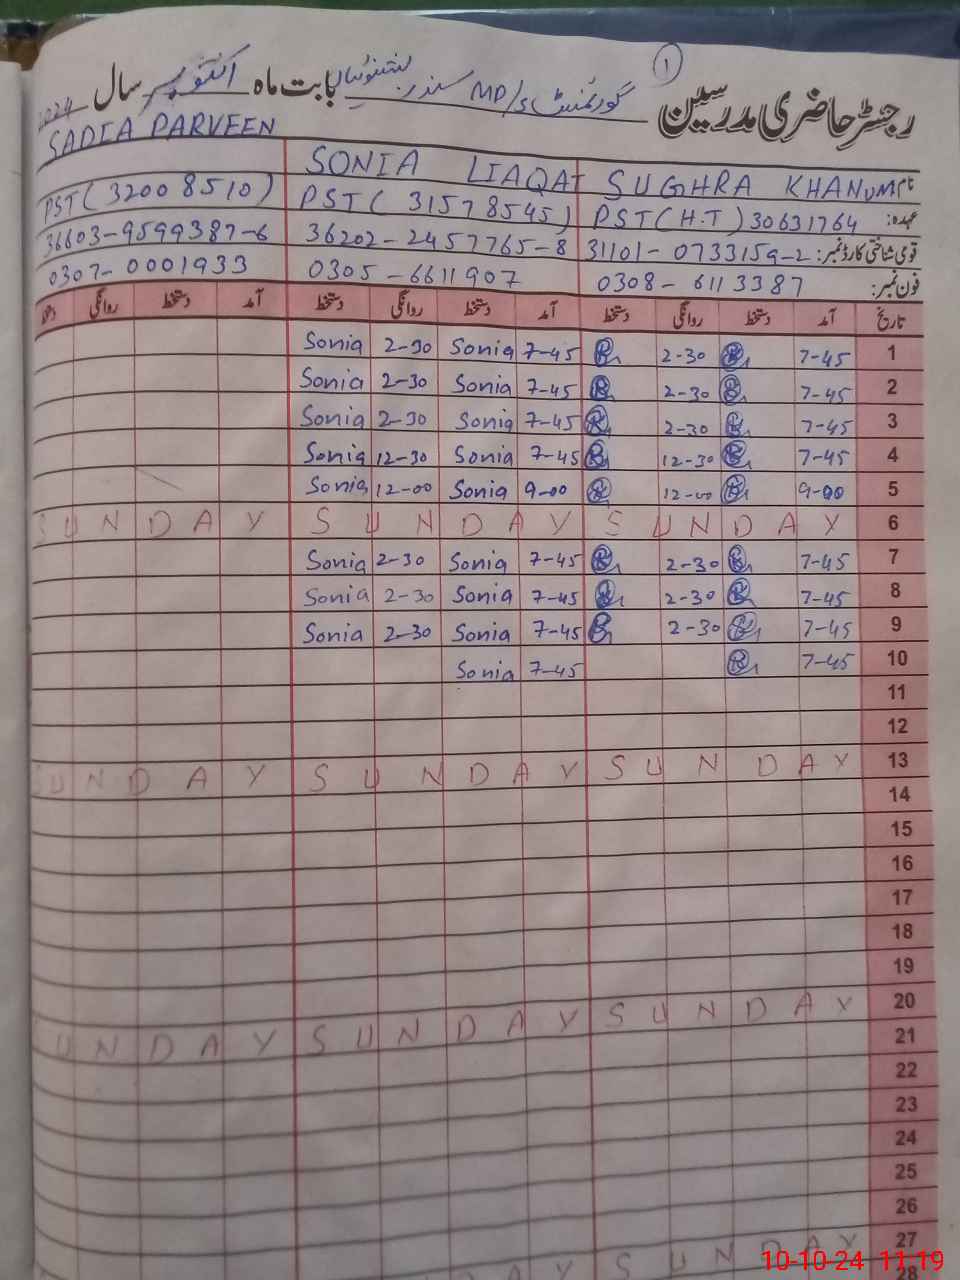 ۱
رجسٹر حاضری مدرسین گورنمنٹ MP/S سندر بابت ماہ اکتوبر سال 2024
نام SUGHRA KHANUM SONIA LIAQAT SADIA PARVEEN
عہدہ: PST(H.T) 30631764 PST( 31578545) PST( 32008510)
قومی شناختی کارڈ نمبر: 31101-0733159-2 36202-2457765-8 36603-9599387-6
فون نمبر: 0308-6113387 0305-6611907 0307-0001933
تاریخ آمد دستخط روانگی دستخط آمد دستخط روانگی دستخط آمد دستخط روانگی دستخط
1 7-45 2-30 7-45 Sonia 2-30 Sonia
2 7-45 2-30 7-45 Sonia 2-30 Sonia
3 7-45 2-30 7-45 Sonia 2-30 Sonia
4 7-45 12-30 7-45 Sonia 12-30 Sonia
5 9-00 12-00 9-00 Sonia 12-00 Sonia
SUNDAY SUNDAY SUNDAY 6
7 7-45 2-30 7-45 Sonia 2-30 Sonia
8 7-45 2-30 7-45 Sonia 2-30 Sonia
9 7-45 2-30 7-45 Sonia 2-30 Sonia
10 7-45 7-45 Sonia
11
12
SUNDAY SUNDAY SUNDAY 13
14
15
16
17
18
19
SUNDAY SUNDAY SUNDAY 20
21
22
23
24
25
26
SUNDAY 27
28
10-10-24 11:19